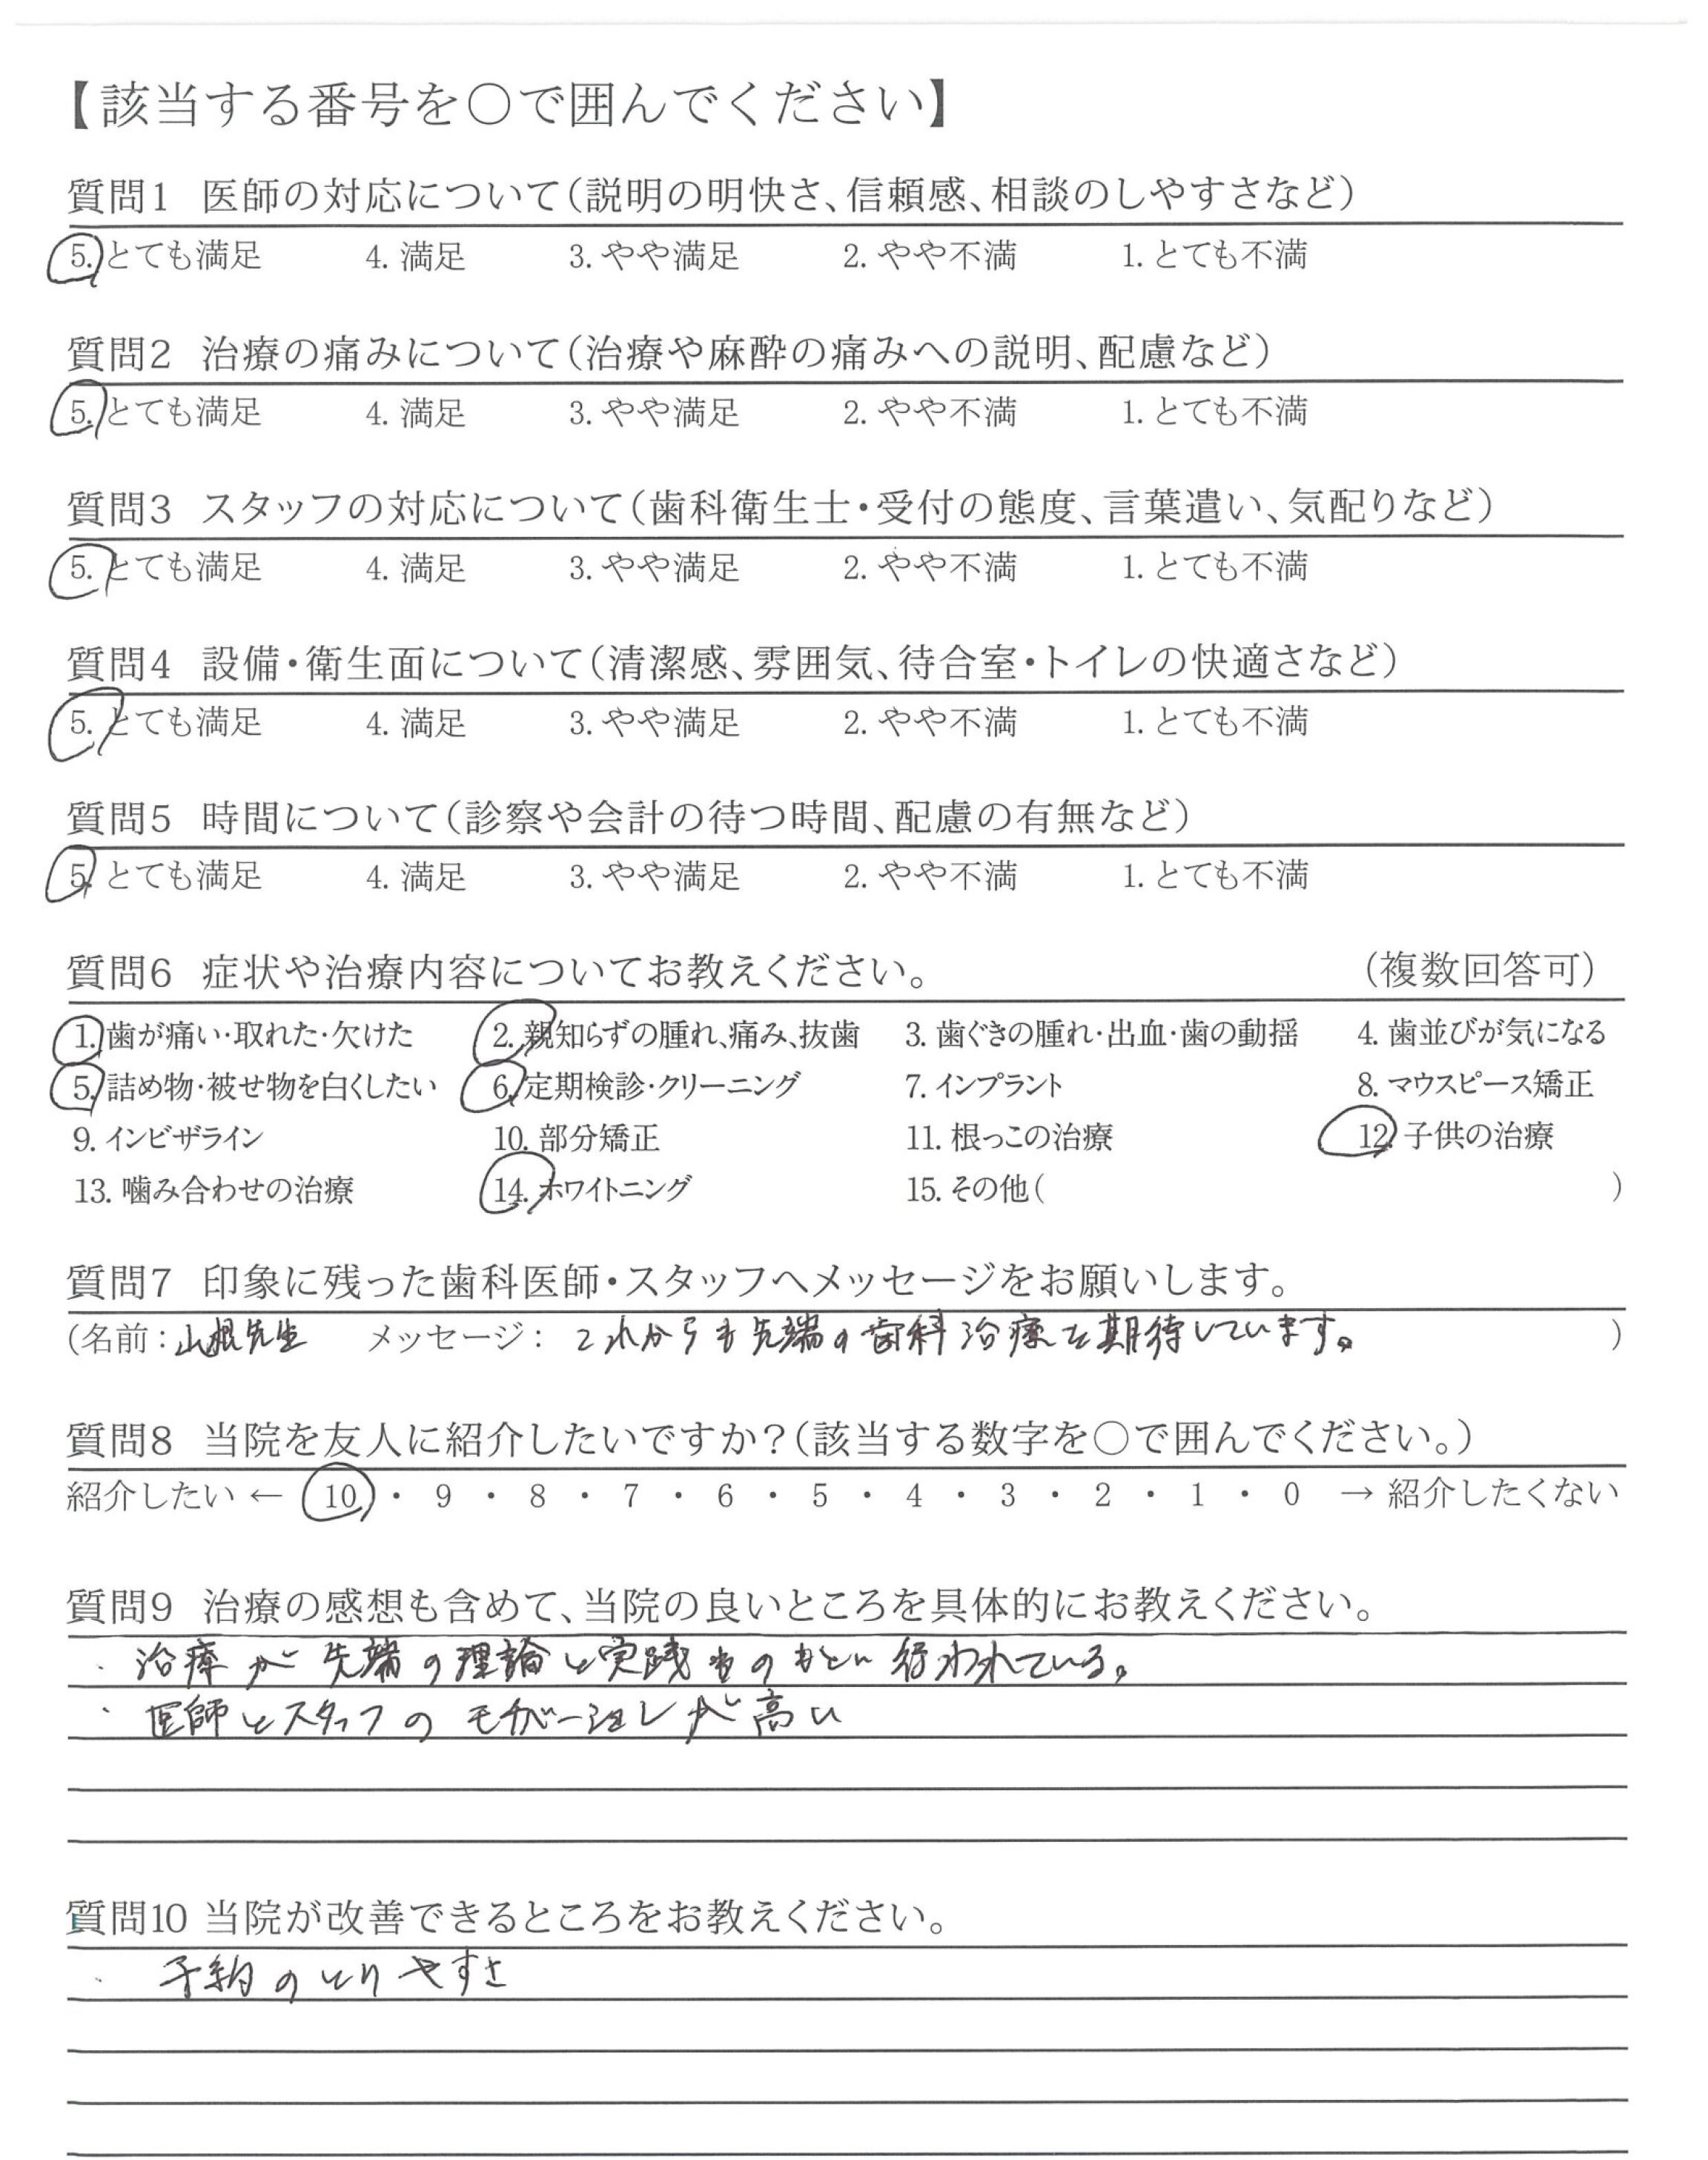 【該当する番号を○で囲んでください】
質問1 医師の対応について(説明の明快さ、信頼感、相談のしやすさなど)
5. とても満足 4. 満足 3. やや満足 2. やや不満 1. とても不満
質問2 治療の痛みについて(治療や麻酔の痛みへの説明、配慮など)
5. とても満足 4. 満足 3. やや満足 2. やや不満 1. とても不満
質問3 スタッフの対応について(歯科衛生士・受付の態度、言葉遣い、気配りなど)
5. とても満足 4. 満足 3. やや満足 2. やや不満 1. とても不満
質問4 設備・衛生面について(清潔感、雰囲気、待合室・トイレの快適さなど)
5. とても満足 4. 満足 3. やや満足 2. やや不満 1. とても不満
質問5 時間について(診察や会計の待つ時間、配慮の有無など)
5. とても満足 4. 満足 3. やや満足 2. やや不満 1. とても不満
質問6 症状や治療内容についてお教えください。 (複数回答可)
1. 歯が痛い・取れた・欠けた 2. 親知らずの腫れ、痛み、抜歯 3. 歯ぐきの腫れ・出血・歯の動揺 4. 歯並びが気になる
5. 詰め物・被せ物を白くしたい 6. 定期検診・クリーニング 7. インプラント 8. マウスピース矯正
9. インビザライン 10. 部分矯正 11. 根っこの治療 12. 子供の治療
13. 噛み合わせの治療 14. ホワイトニング 15. その他( )
質問7 印象に残った歯科医師・スタッフへメッセージをお願いします。
(名前：山根先生 メッセージ： これからも先端の歯科治療を期待しています。 )
質問8 当院を友人に紹介したいですか？(該当する数字を○で囲んでください。)
紹介したい ← 10 ・ 9 ・ 8 ・ 7 ・ 6 ・ 5 ・ 4 ・ 3 ・ 2 ・ 1 ・ 0 → 紹介したくない
質問9 治療の感想も含めて、当院の良いところを具体的にお教えください。
・ 治療が先端の理論と実践のもとに行われている。
・ 医師とスタッフのモチベーションが高い
質問10 当院が改善できるところをお教えください。
・ 予約のとりやすさ